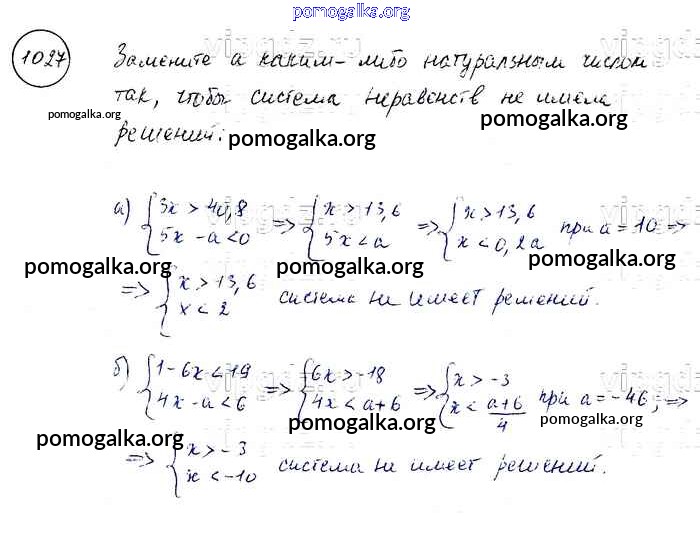 pomogalka.org
1027 Замените а каким-либо натуральным числом
так, чтобы система неравенств не имела
pomogalka.org pomogalka.org
решений: pomogalka.org
а) { 3x > 40,8 => { x > 13,6 => { x > 13,6 при a = 10 =>
5x - a < 0 5x < a x < 0,2a
pomogalka.org pomogalka.org pomogalka.org
=> { x > 13,6 система не имеет решений.
x < 2
б) { 1 - 6x < 19 => { 6x > -18 => { x > -3 при a = -46, =>
4x - a < 6 4x < a + 6 x < (a+6)/4
pomogalka.org pomogalka.org pomogalka.org
=> { x > -3 система не имеет решений.
x < -10